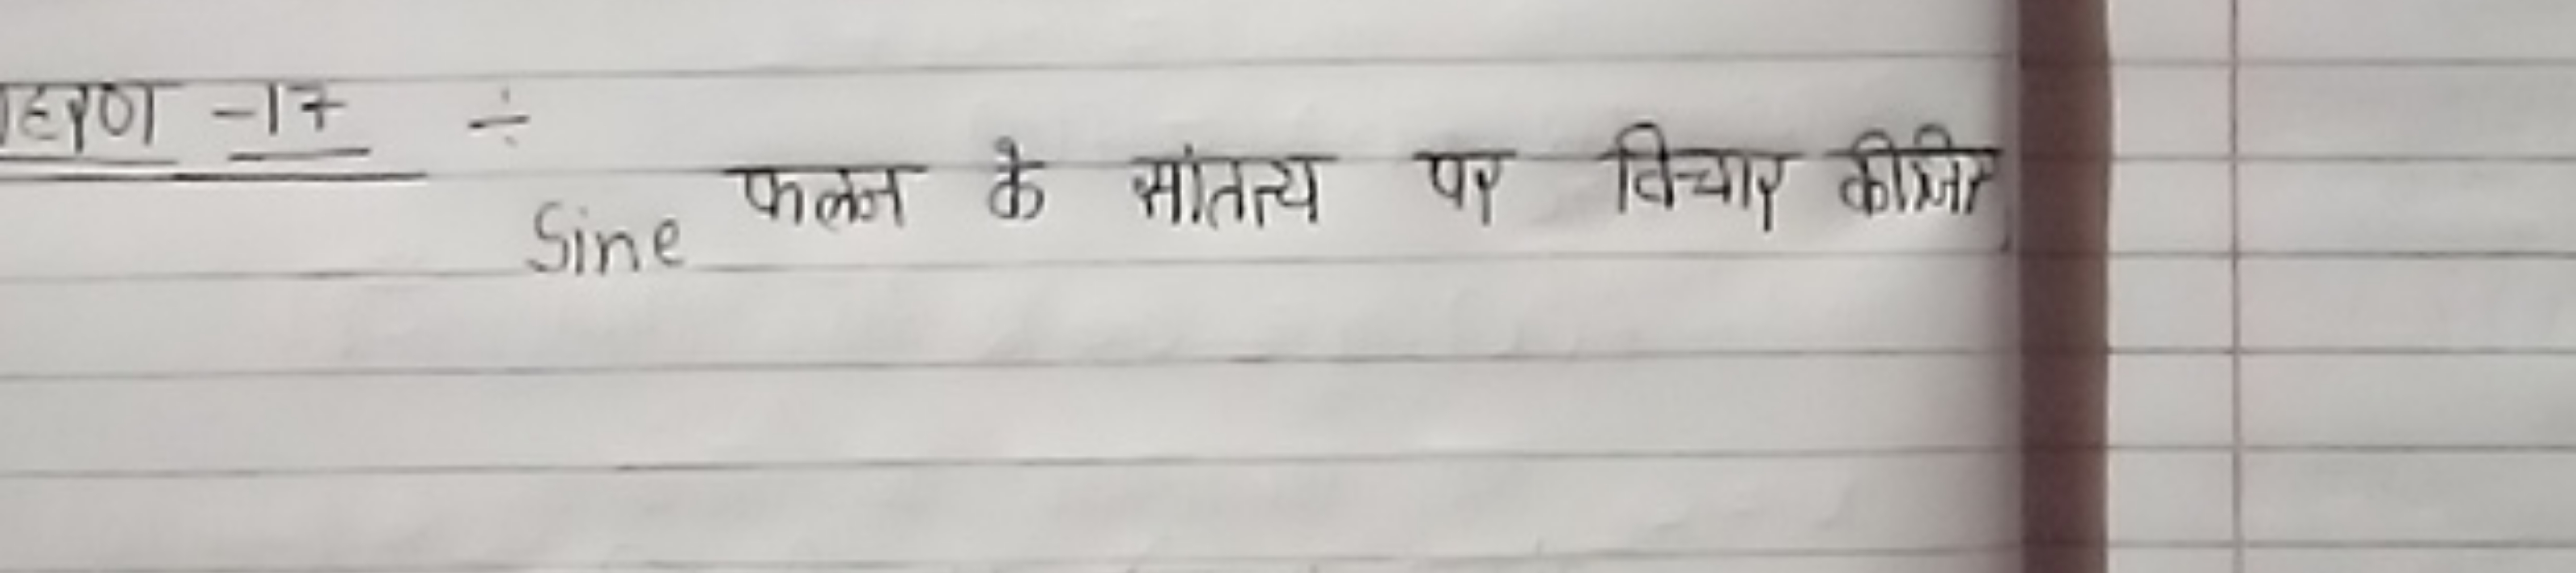 हरण -17 ÷
Sine फलन के सांतत्य पर विचार कीजिए